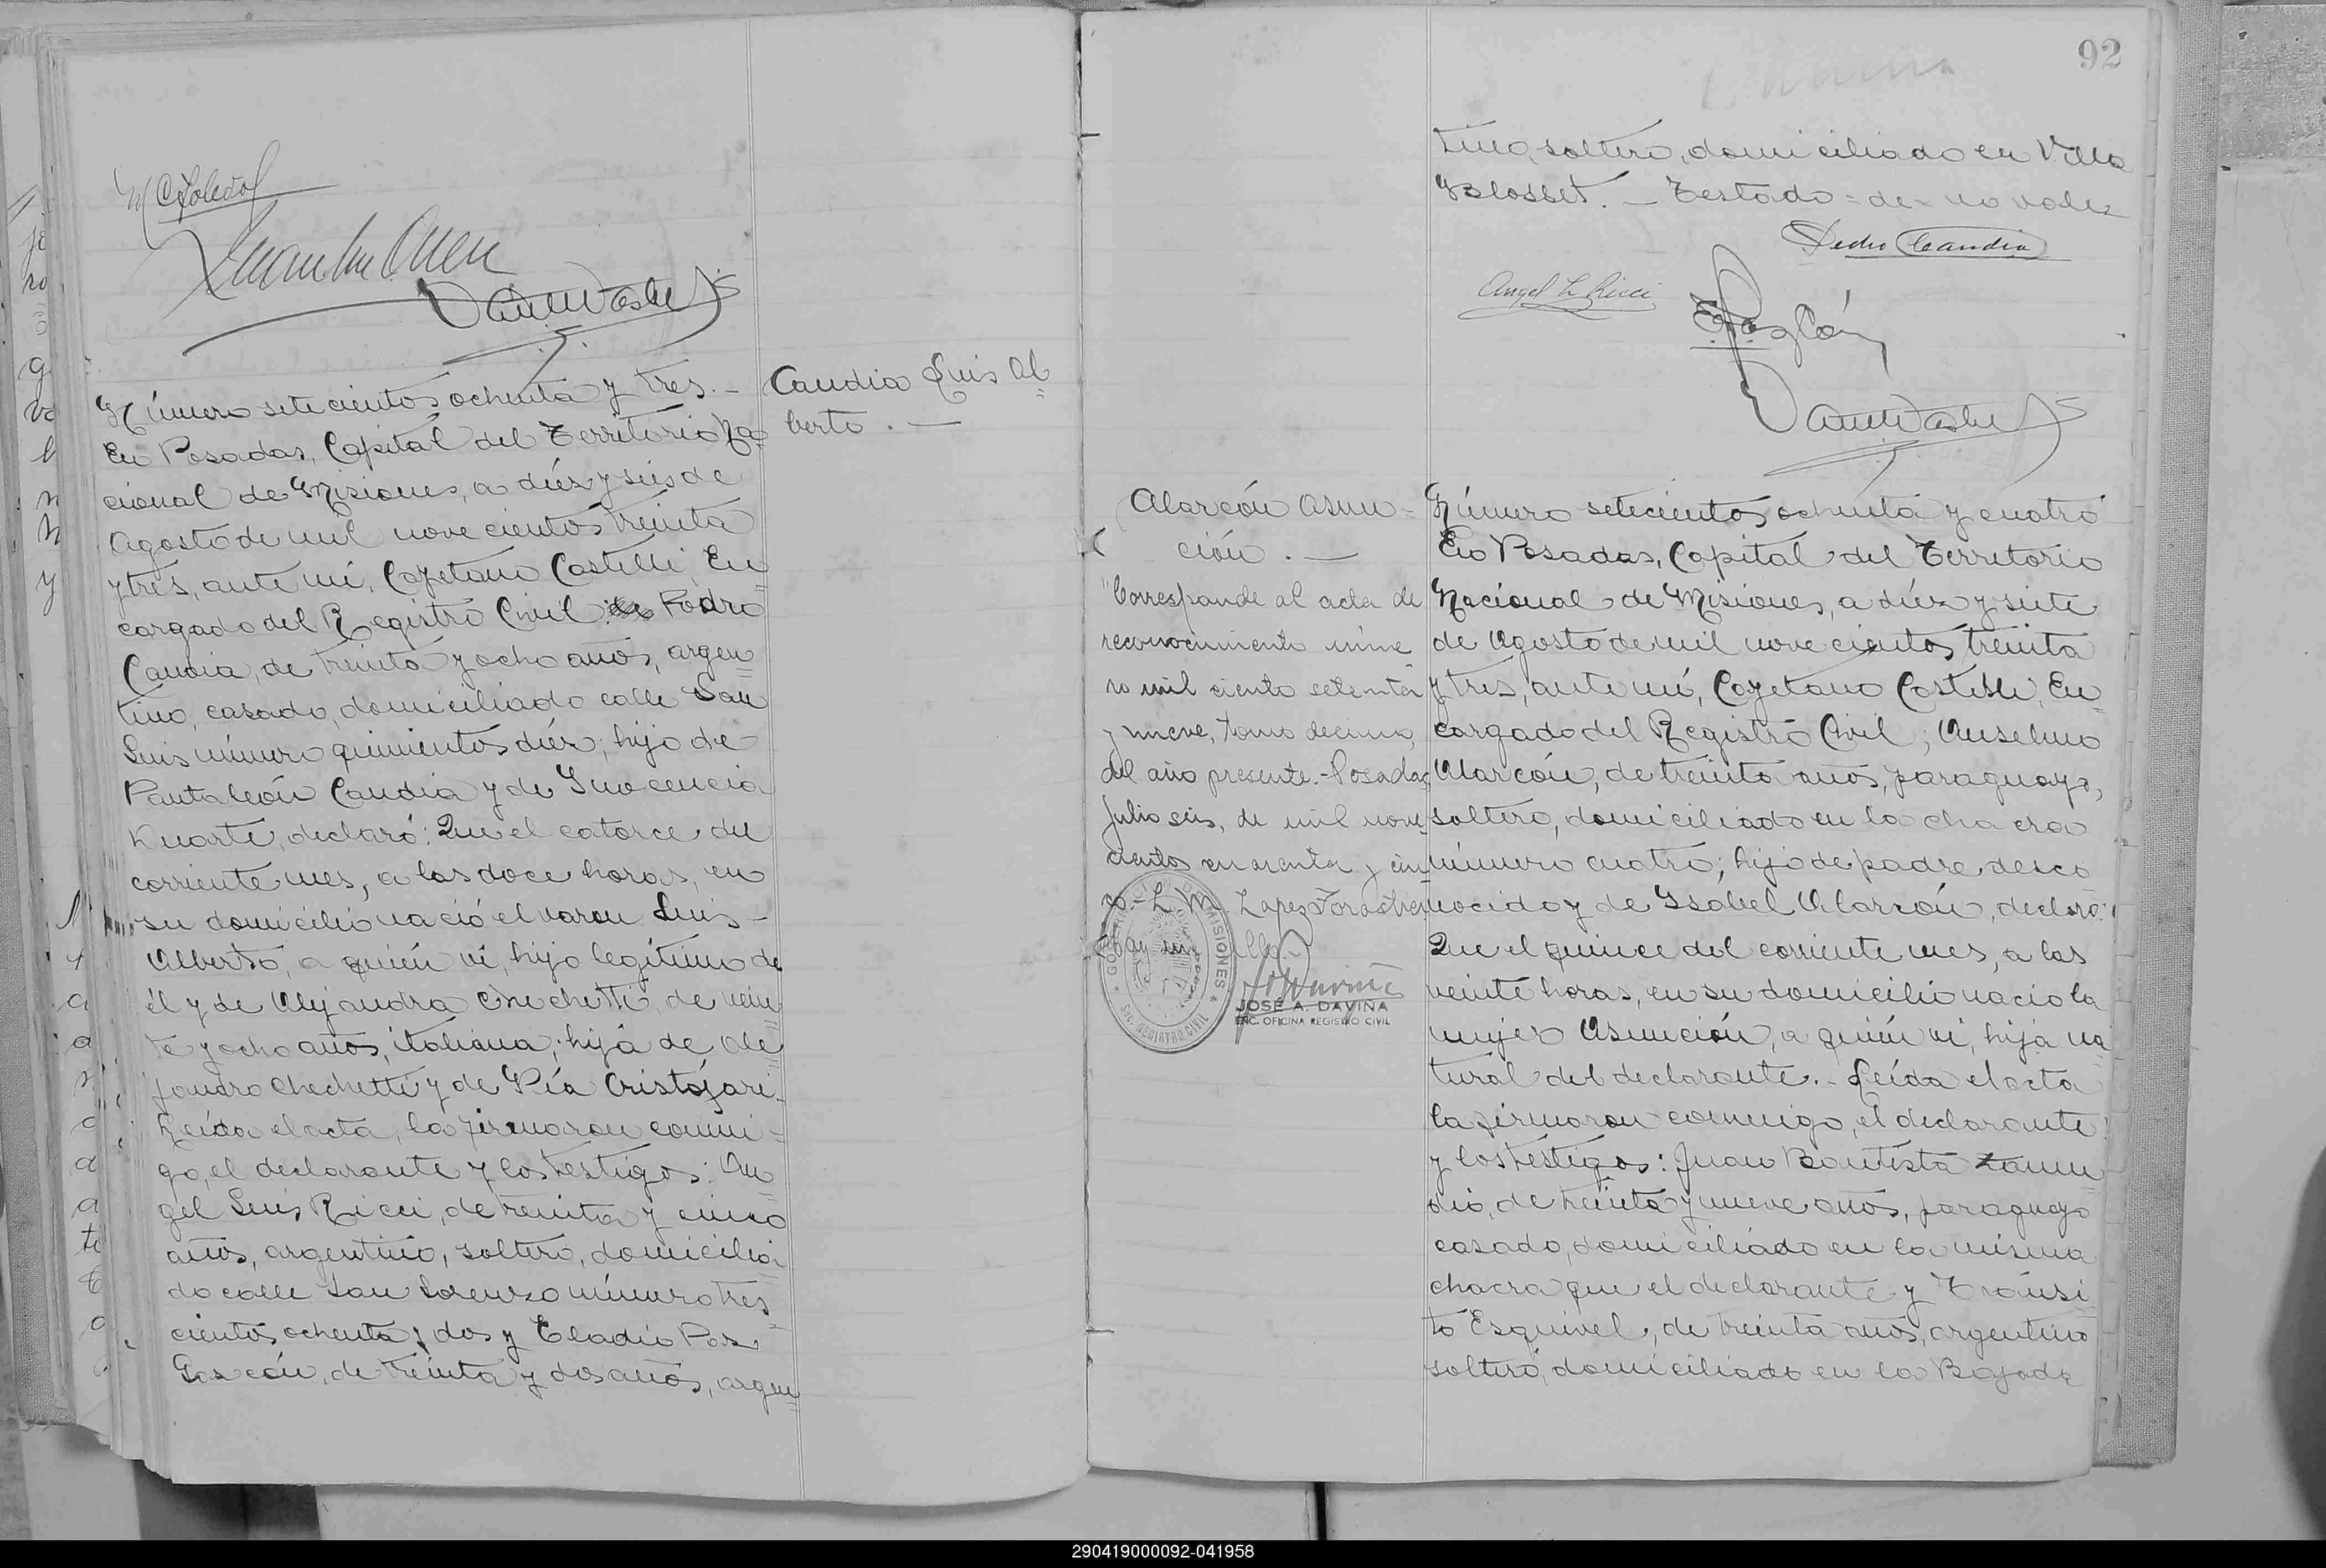 M C Toledo
Número setecientos ochenta y tres.-
En Posadas, Capital del Territorio Na=
cional de Misiones, a diéz y seis de
Agosto de mil novecientos treinta
y tres, ante mí, Cayetano Castelli, En=
cargado del Registro Civil de Pedro
Candia, de treinta y ocho años, argen=
tino, casado, domiciliado calle San
Luis número quinientos diéz; hijo de
Pantaleón Candia y de Inocencia
Duarte, declaró: Que el catorce del
corriente mes, a las doce horas, en
su domicilio nació el varon Luis-
Alberto, a quién ví, hijo legítimo de
él y de Alejandra Chechetti, de vein=
te y ocho años, italiana; hija de Ale=
jandro Chechetti y de Pía Cristófari.-
Leída el acta, la firmaron conmi=
go, el declarante y los testigos: An=
gel Luis Ricci, de treinta y cinco
años, argentino, soltero, domicilia=
do calle San Lorenzo número tres=
cientos ochenta y dos y Eladio
de treinta y dos años, argen=
Candia Luis Al=
berto.-
92
tino, soltero, domiciliado en Villa
Blosset.- Testado=de=no vale=
Pedro Candia
Angel L. Ricci
Alarcón Asun=
ción.-
"Corresponde al acta de
reconocimiento núme
ro mil ciento setenta
y nueve, tomo decimo,
del año presente.- Posadas,
Julio seis, de mil nove
cientos cuarenta y cin
co.-
GOBERNACION DE MISIONES
ENC. REGISTRO CIVIL
JOSÉ A. DAVIÑA
ENC. OFICINA REGISTRO CIVIL
Número setecientos ochenta y cuatro
En Posadas, Capital del Territorio
Nacional de Misiones, a diéz y siete
de Agosto de mil novecientos treinta
y tres, ante mí, Cayetano Castelli, En=
cargado del Registro Civil; Anselmo
Alarcón, de treinta años, paraguayo,
soltero, domiciliado en la chacra
número cuatro; hijo de padre desco
nocido y de Isabel Alarcón, declaró:
Que el quince del corriente mes, a las
veinte horas, en su domicilio nació la
mujer Asunción, a quién ví, hija na
tural del declarante.- Leída el acta
la firmaron conmigo, el declarante
y los testigos: Juan Bautista Zamu
dio, de treinta y nueve años, paraguayo
casado, domiciliado en la misma
chacra que el declarante y Tránsi
to Esquivel, de treinta años, argentino
soltero, domiciliado en la Bajada
290419000092-041958